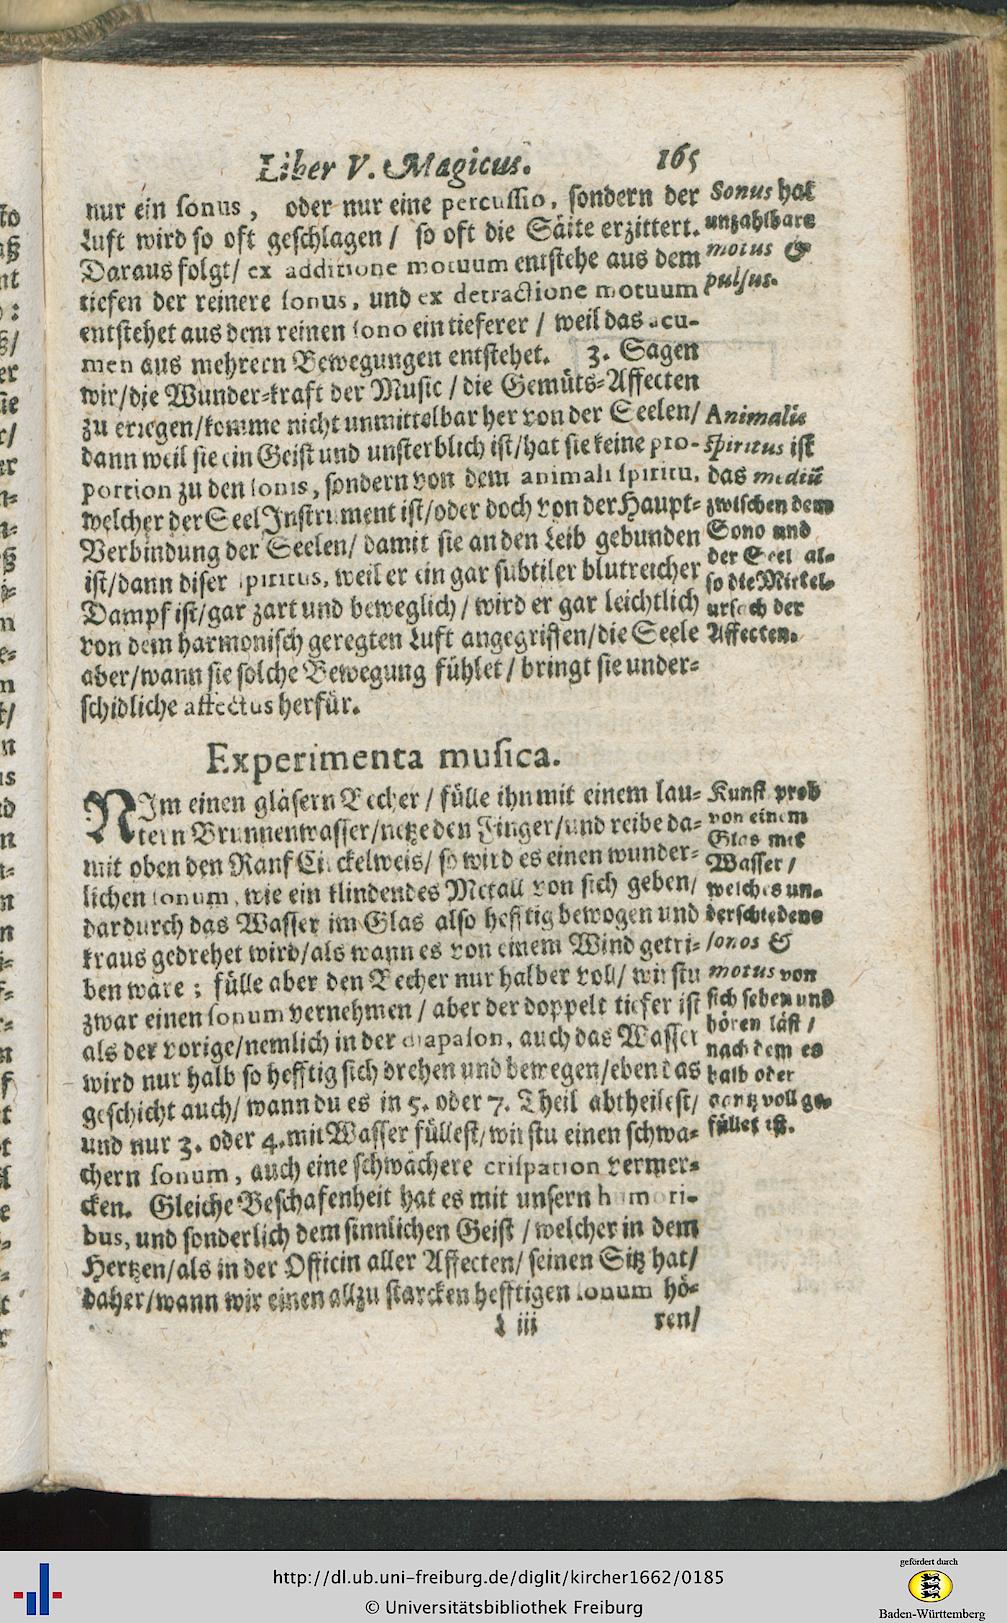 Liber V. Magicus. 165
nur ein sonus, oder nur eine percussio, sondern der
Luft wird so oft geschlagen/ so oft die Säite erzittert.
Daraus folgt/ ex additione motuum entstehe aus dem
tiefen der reinere sonus, und ex detractione motuum
entstehet aus dem reinen sono ein tieferer / weil das acu-
men aus mehrern Bewegungen entstehet. 3. Sagen
wir/die Wunder-kraft der Music / die Gemüts-Affecten
zu erregen/komme nicht unmittelbar her von der Seelen/
dann weil sie ein Geist und unsterblich ist/hat sie keine pro-
portion zu den sonis, sondern von dem animali spiritu,
welcher der Seel Instrument ist/oder doch von der Haupt-
Verbindung der Seelen/ damit sie an den Leib gebunden
ist/dann diser spiritus, weil er ein gar subtiler blutreicher
Dampf ist/gar zart und beweglich/ wird er gar leichtlich
von dem harmonisch geregten Luft angegriffen/die Seele
aber/wann sie solche Bewegung fühlet/ bringt sie under-
schidliche affectus herfür.
Sonus hat
unzahlbare
motus &
pulsus.
Animalis
spiritus ist
das mediū
zwischen dem
Sono und
der Seel al-
so die Mittel-
ursach der
Affecten.
Experimenta musica.
NIm einen gläsern Becher / fülle ihn mit einem lau-
tern Brunnenwasser/netze den Finger/und reibe da-
mit oben den Ranf Circkelweis/ so wird es einen wunder-
lichen sonum, wie ein klindendes Metall von sich geben/
dardurch das Wasser im Glas also hefftig bewogen und
kraus gedrehet wird/als wann es von einem Wind getri-
ben wäre; fülle aber den Becher nur halber voll/ wirstu
zwar einen sonum vernehmen / aber der doppelt tiefer ist
als der vorige/nemlich in der diapason, auch das Wasser
wird nur halb so hefftig sich drehen und bewegen/eben das
geschicht auch/ wann du es in 5. oder 7. Theil abtheilest/
und nur 3. oder 4. mit Wasser füllest/wirstu einen schwa-
chern sonum, auch eine schwächere crispation vermer-
cken. Gleiche Beschafenheit hat es mit unsern humori-
bus, und sonderlich dem sinnlichen Geist / welcher in dem
Hertzen/als in der Officin aller Affecten/ seinen Sitz hat/
daher/wann wir einen allzu starcken hefftigen sonum hö-
Kunst prob
von einem
Glas mit
Wasser /
welches un-
derschiedene
sonos &
motus von
sich sehen und
hören läst /
nach dem es
halb oder
gantz voll ge-
füllet ist.
L iii ren/
http://dl.ub.uni-freiburg.de/diglit/kircher1662/0185
© Universitätsbibliothek Freiburg
gefördert durch
Baden-Württemberg